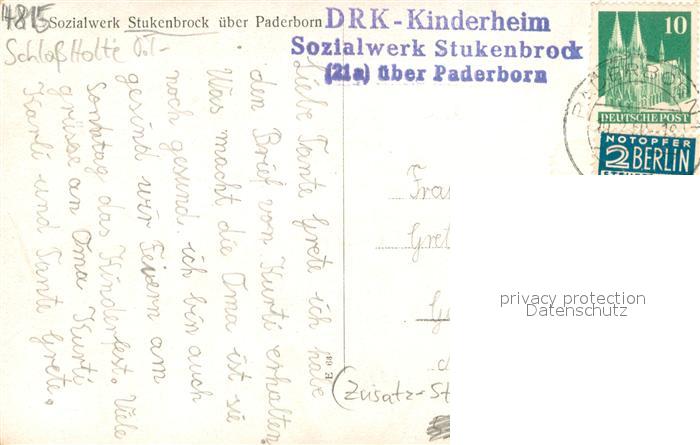 4815
Sozialwerk Stukenbrock über Paderborn
Schloß Holte
DRK-Kinderheim
Sozialwerk Stukenbrock
(21a) über Paderborn
10
DEUTSCHE POST
NOTOPFER
2 BERLIN
STEUERMARKE
PADERBORN
Liebe Tante Grete ich habe
den Brief von Kurti erhalten.
Was macht die Oma ist sie
noch gesund. ich bin auch
gesind wir Feiern am
Sonntag das Kinderfest. Viele
grüsse an Oma Kurti
Karli und Tante Grete.
E 64
Fra
Gret
(Zusatz-St
privacy protection
Datenschutz